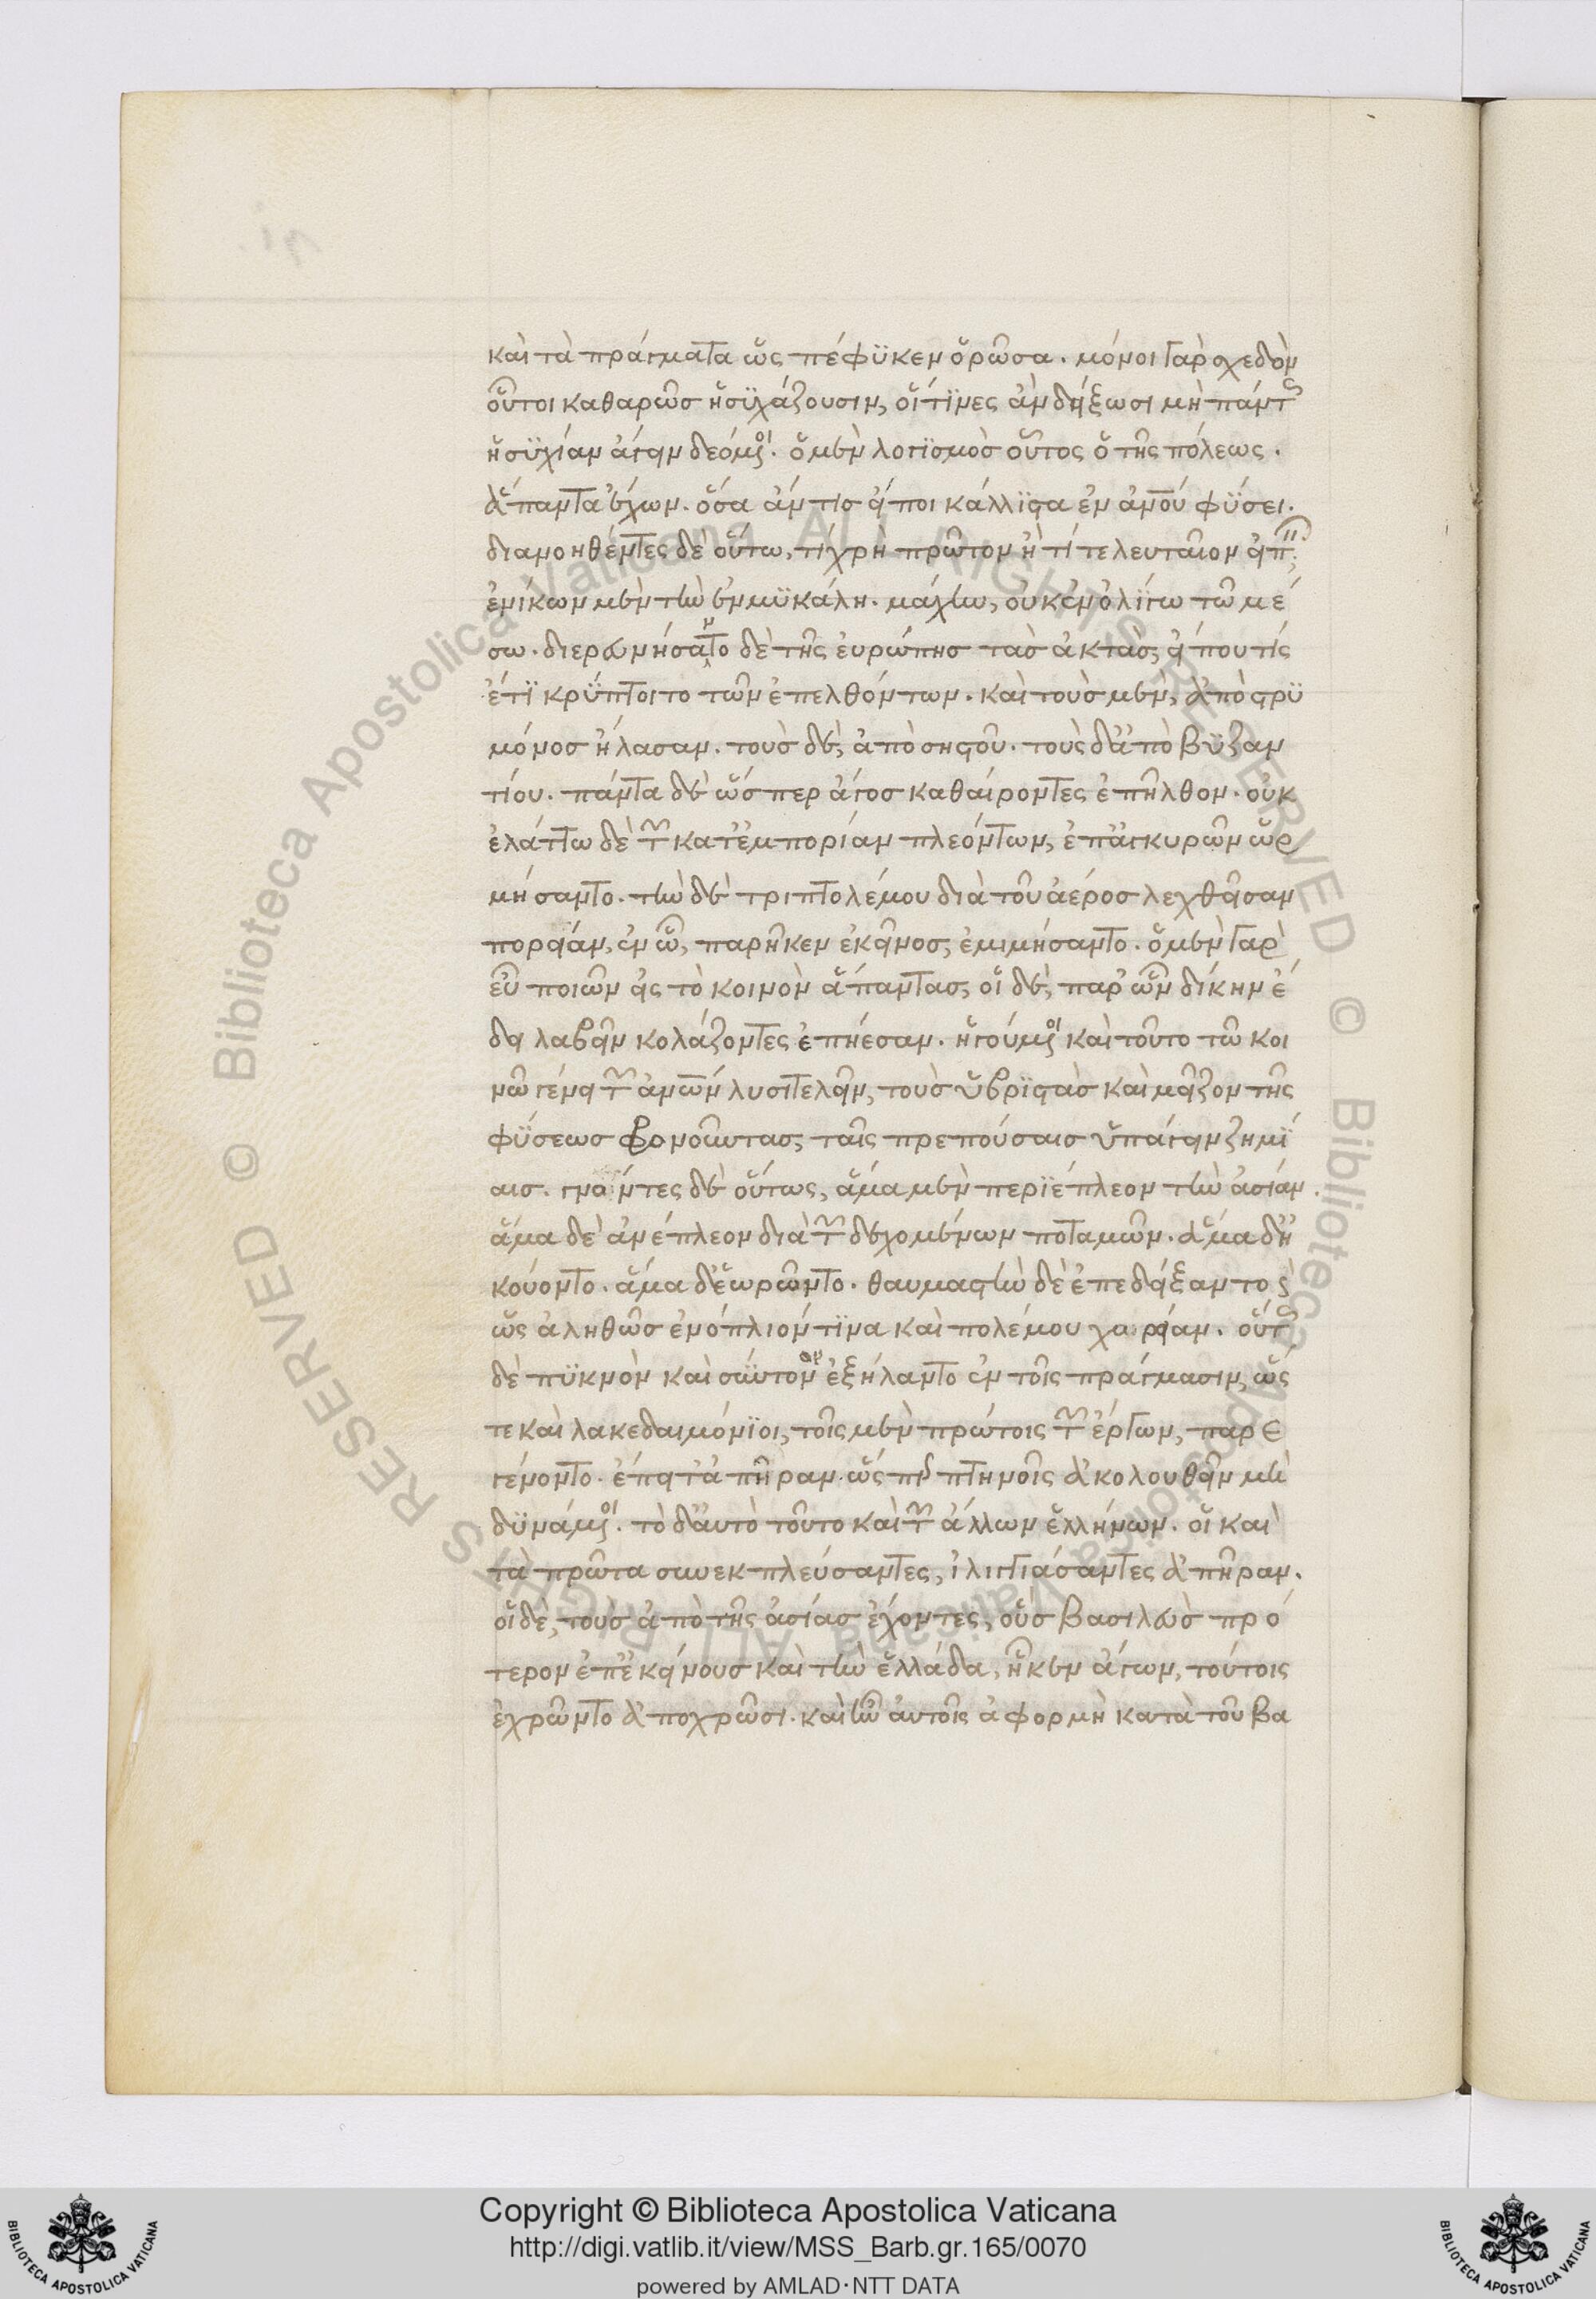 καὶ τὰ πράγματα ὡς πέφϋκεν ὁρῶσα. μόνοι γὰρ σχεδὸν
οὗτοι καθαρῶσ ἡσϋχάζουσιν, οἵτϊνες ἂν δείξωσι μὴ πάντως
ἡσϋχίαν ἄγειν δεόμενοι. ὁ μὲν λογϊσμὸσ οὗτος ὁ τῆς πόλεως.
ἅπαντα ἔχων. ὅσα ἄν τισ εἴποι κάλλϊστα ἐν ἀνου φϋσει.
διανοηθέντες δὲ οὕτω, τί χρὴ πρῶτον ἢ τί τελευταῖον εἰπεῖν;
ἐνίκων μὲν τὴν ἐν μϋκάλη. μάχην, οὐκ ἐν ὀλίγω τῶ μέ
σω. διερώνήσαντο δὲ τῆς ἐυρώπησ τὰσ ἀκτὰσ, εἴ που τίς
ἔτϊ κρϋπτοιτο τῶν ἐπελθόντων. καὶ τοὺσ μὲν, ἀπὸ στρϋ
μόνοσ ἤλασαν. τοὺσ δὲ, ἀπὸ σηστοῦ. τοὺς δ' ἀπὸ βϋζαν
τίου. πάντα δὲ ὥσπερ ἄγοσ καθαίροντες ἐπῆλθον. οὐκ
ἐλάττω δὲ τῶν κατ' ἐμπορίαν πλεόντων, ἐπ' ἀγκυρῶν ὡρ
μήσαντο. τὴν δὲ τριπτολέμου διὰ τοῦ ἀέροσ λεχθεῖσαν
πορείαν, ἐν ὧ, παρῆκεν ἐκεῖνοσ, ἐμιμήσαντο. ὁ μὲν γὰρ
εὖ ποιῶν εἰς τὸ κοινὸν ἅπαντασ, οἱ δὲ, παρ' ὧν δίκην ἔ
δει λαβεῖν κολάζοντες ἐπήεσαν. ἡγούμενοι καὶ τοῦτο τῶ κοι
νῶ γένει τῶν ἀνων λυσιτελεῖν, τοὺσ ὑβρϊστὰσ καὶ μεῖζον τῆς
φϋσεωσ φρονοῦντασ, ταῖς πρεπούσαισ ὑπάγειν ζημϊ
αισ. γνόντες δὲ οὕτως, ἅμα μὲν περϊέπλεον τὴν ἀσίαν.
ἅμα δὲ ἀνέπλεον διὰ τῶν δεχομένων ποταμῶν. ἅμα δ' ἠ
κούοντο. ἅμα δ' ἑωρῶντο. θαυμαστὴν δὲ ἐπεδείξαντο καὶ
ὡς ἀληθῶσ ἐνόπλιόν τϊνα καὶ πολέμου χορείαν. οὕτω
δὲ πϋκνὸν καὶ σύντονον ἐξήλαντο ἐν τοῖς πράγμασιν, ὥς
τε καὶ λακεδαιμόνϊοι, τοῖς μὲν πρώτοις τῶν ἔργων, παρε
γένοντο. ἔπειτ' ἀπῆραν. ὥσπερ πτηνοῖς ἀκολουθεῖν μὴ
δϋνάμενοι. τὸ δ' ἀυτὸ τοῦτο καὶ τῶν ἄλλων ἑλλήνων. οἳ καὶ
τὰ πρῶτα συνεκπλεύσαντες, ἰλιγγιάσαντες ἀπῆραν.
οἱ δὲ, τοὺσ ἀπὸ τῆς ἀσίασ ἔχοντες, οὓσ βασιλεὺσ πρό
τερον ἐπ' ἐκείνουσ καὶ τὴν ἑλλάδα, ἧκεν ἄγων, τούτοις
ἐχρῶντο ἀποχρῶσι. καὶ ἦν ἀυτοῖς ἀφορμὴ κατὰ τοῦ βα
Copyright © Biblioteca Apostolica Vaticana
http://digi.vatlib.it/view/MSS_Barb.gr.165/0070
powered by AMLAD·NTT DATA